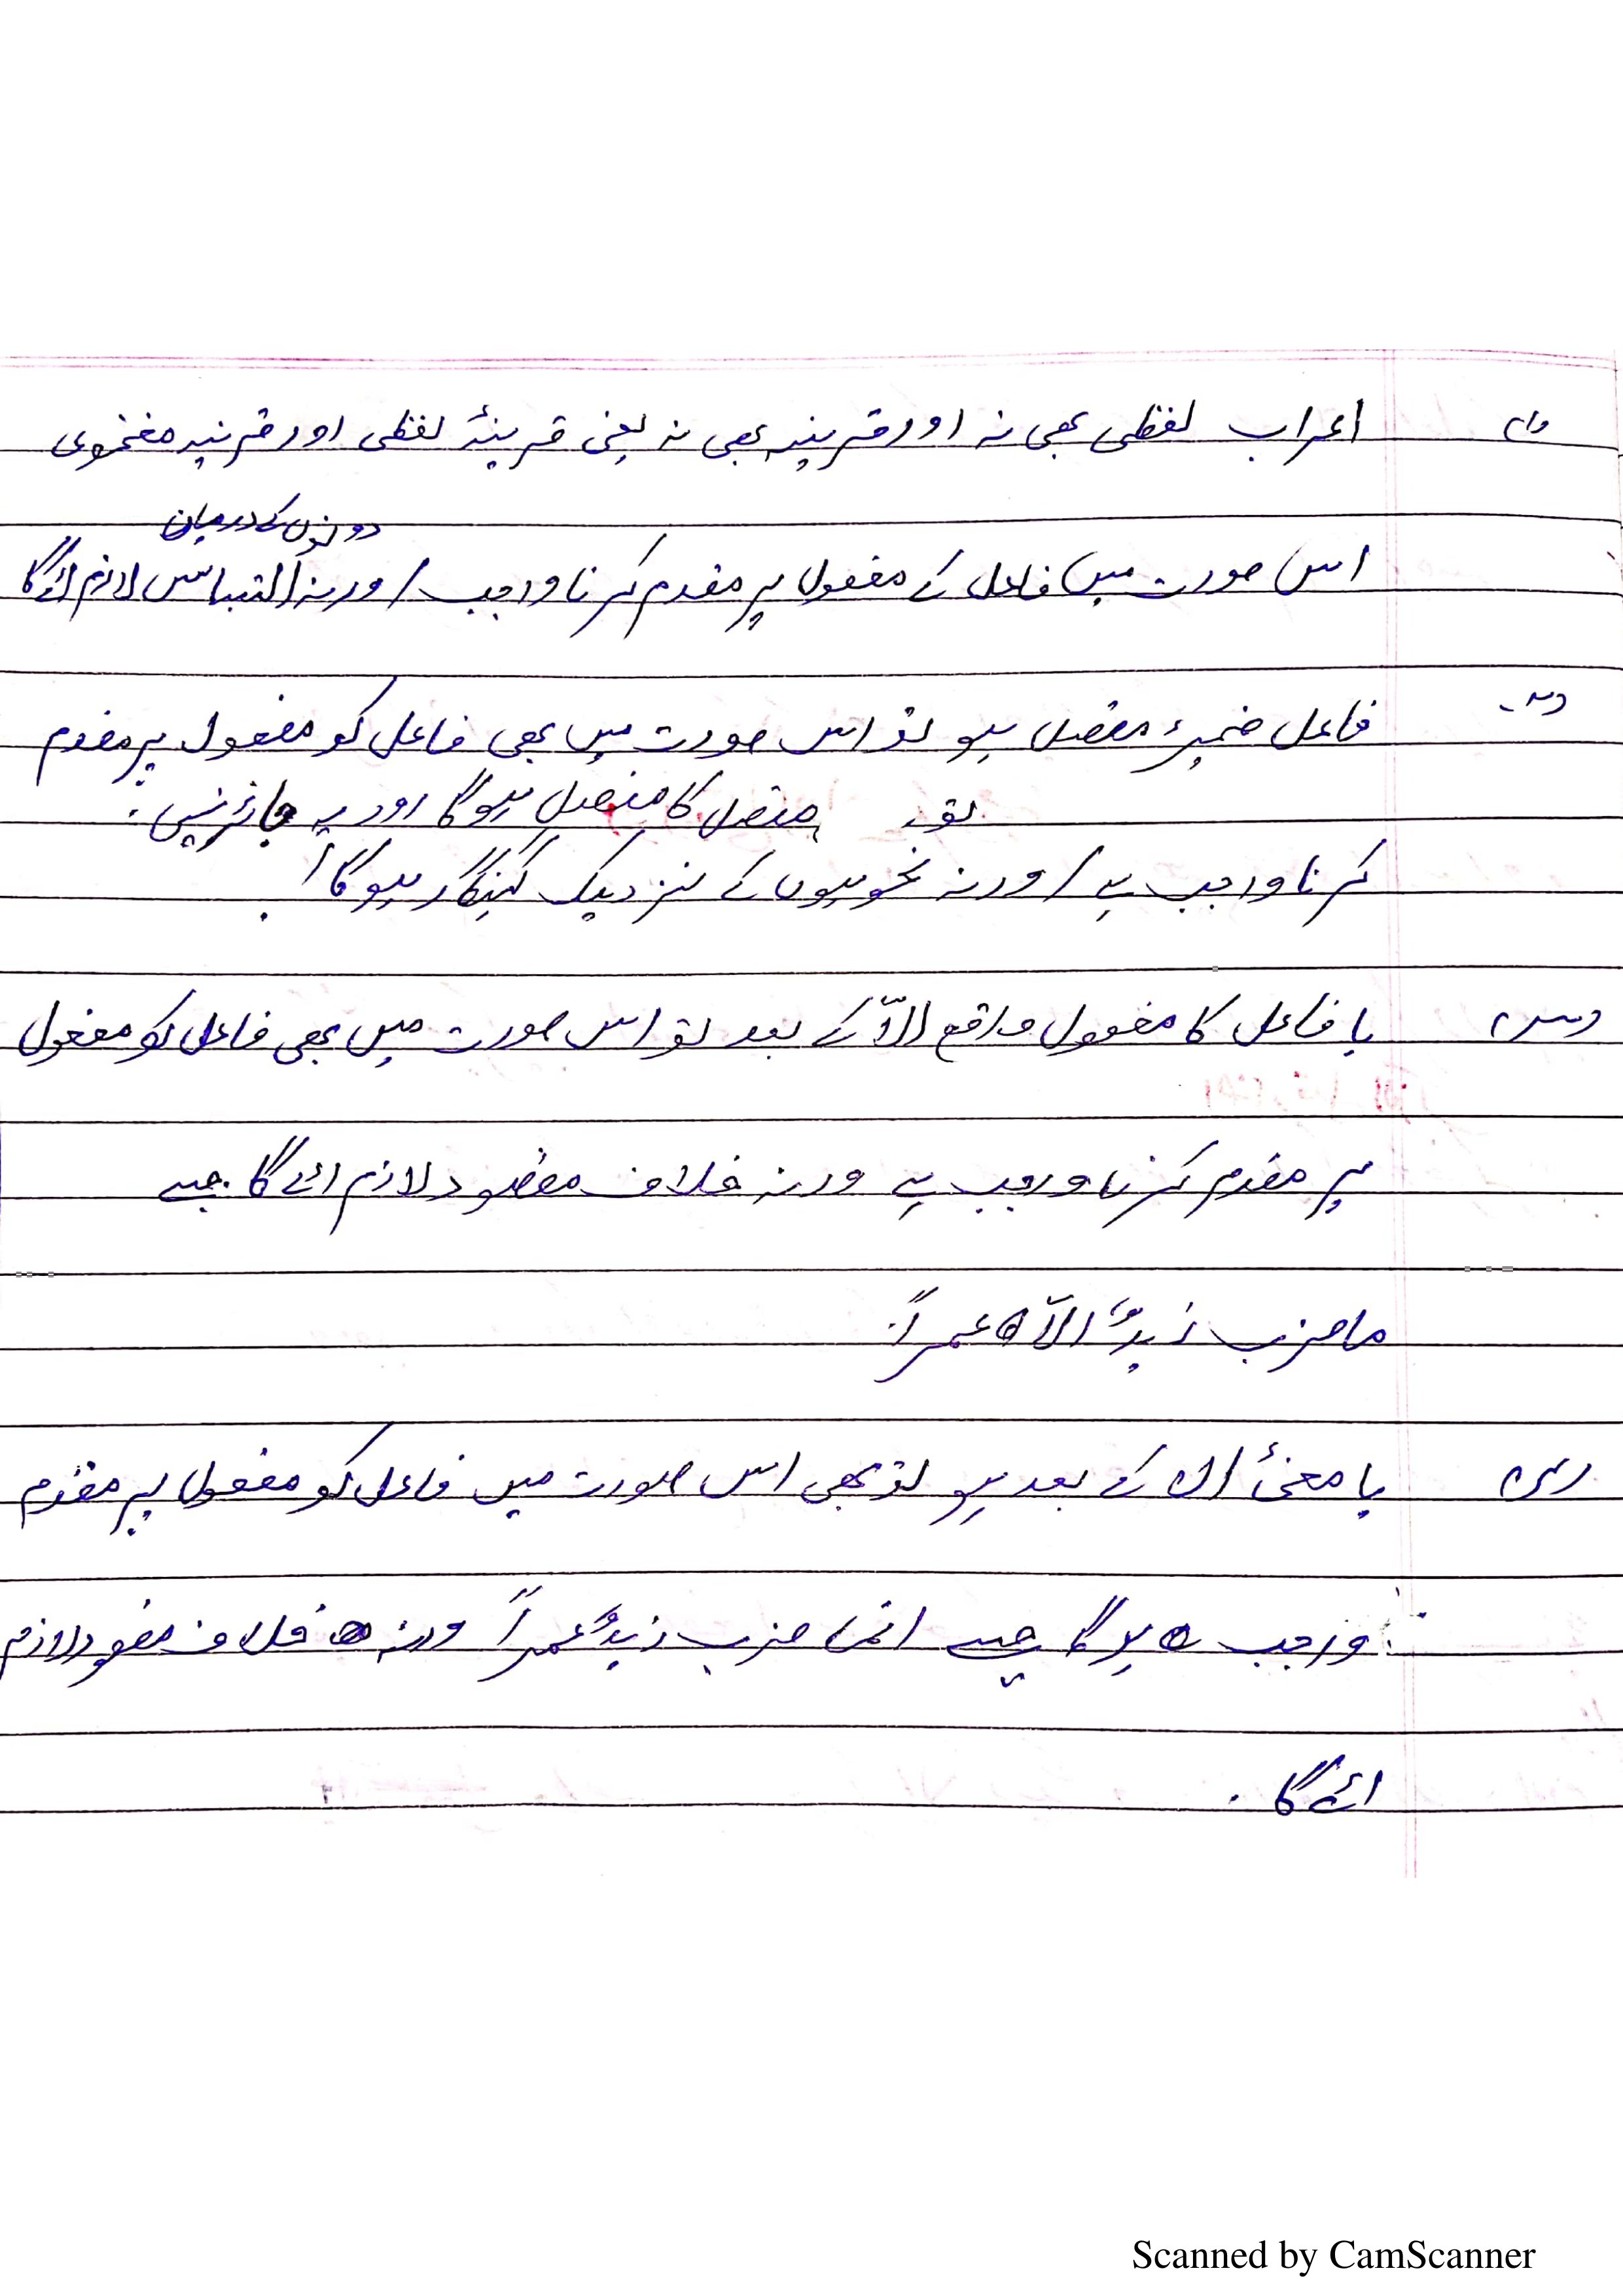 (۱) اعراب لفظی بھی نہ اور قرینہ بھی نہ یعنی قرینۂ لفظی اور قرینہ معنوی
دونوں کے درمیان
اس صورت میں فاعل کے مفعول پر مقدم کرنا واجب / ورنہ التباس لازم ائے گا
(۲) فاعل ضمیرء متصل ہو تو اس صورت میں بھی فاعل کو مفعول پر مقدم
تو متصل کا منفصل ہوگا اور یہ جائز نہیں.
کرنا واجب ہے / ورنہ نحویوں کے نزدیک گنہگار ہوگا!
(۳) یا فاعل کا مفعول واقع الّا کے بعد تو اس صورت میں بھی فاعل کو مفعول
پر مقدم کرنا واجب ہے ورنہ خلاف مقصود لازم ائے گا. جیسے
ما ضرب زیدٌ الّا عمراً.
(۴) یا معنیٔ الا کے بعد ہو تو بھی اس صورت میں فاعل کو مفعول پر مقدم
واجب ہوگا جیسے انما ضرب زیدٌ عمراً ورنہ خلاف مقصود لازم
ائے گا.
Scanned by CamScanner